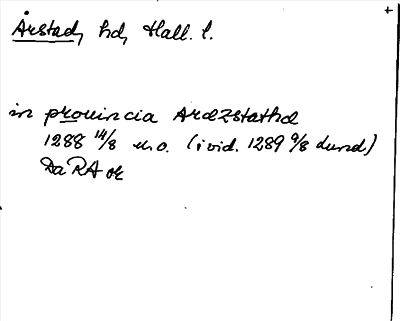 Årstad, hd, Hall. l.
in prouincia Ardzstathd
1288 14/8 u.o. (i vid. 1289 9/8 Lund)
Da RA or